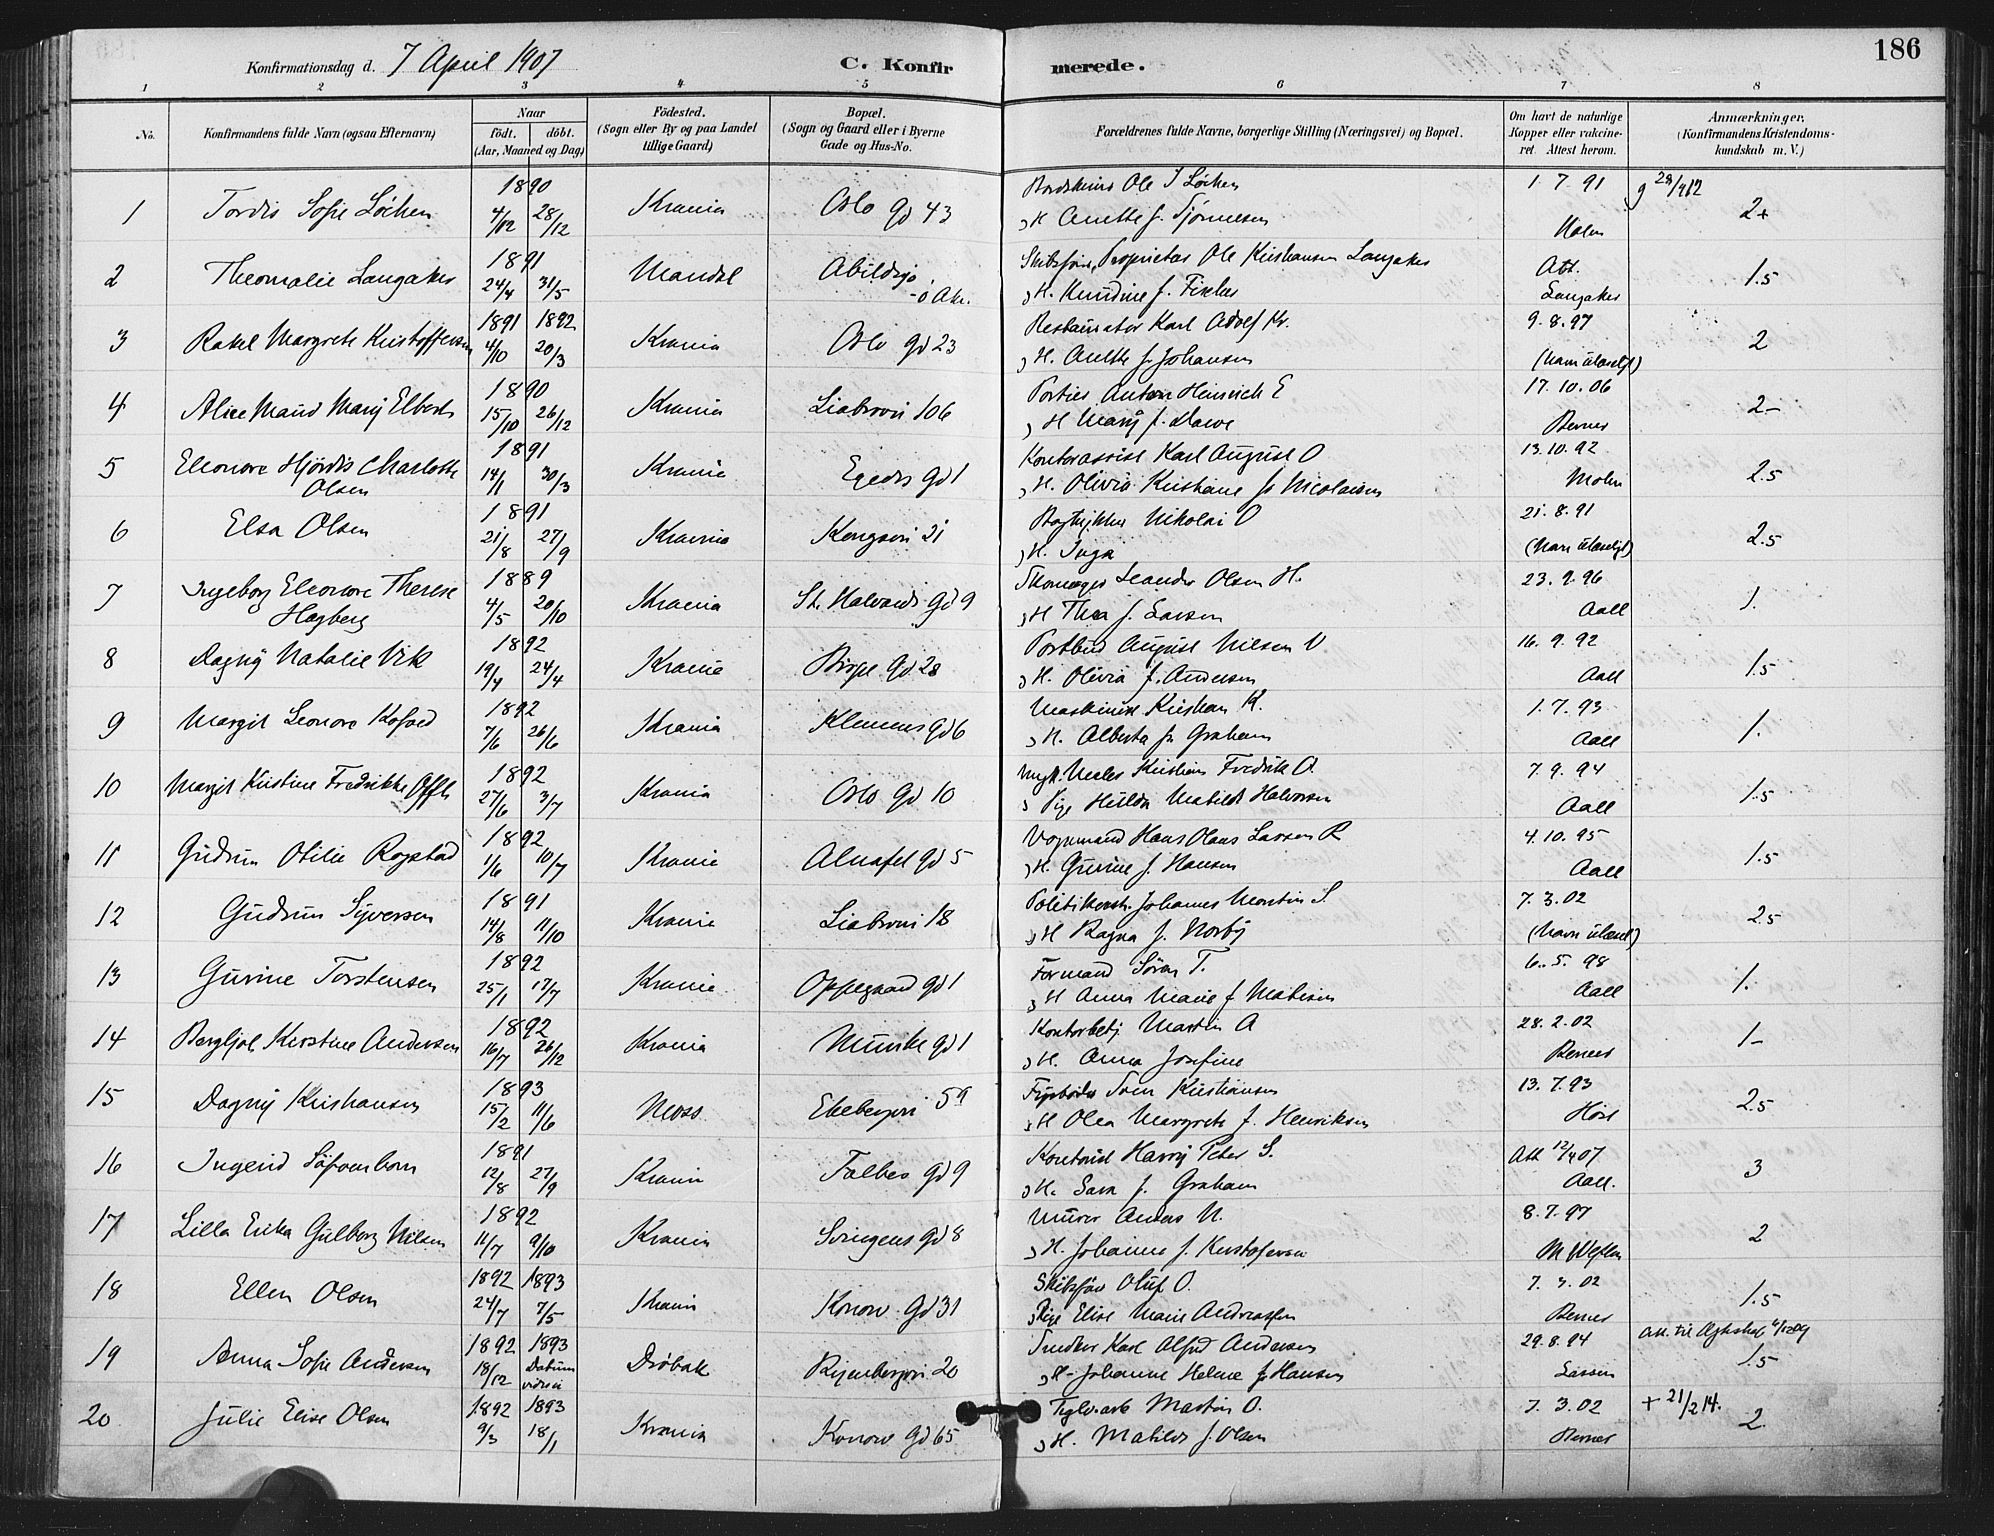 186
Konfirmationsdag d. 7 April 1907
C. Konfirmerede.
1 2 3 4 5 6 7 8
No. Konfirmandens fulde Navn (ogsaa Efternavn) Naar født. døbt. (Aar, Maaned og Dag) Fødested. (Sogn eller By og paa Landet tillige Gaard) Bopæl. (Sogn og Gaard eller i Byerne Gade og Hus-No. Forældrenes fulde Navne, borgerlige Stilling (Næringsvei) og Bopæl. Om havt de naturlige Kopper eller vaccineret. Attest herom. Anmærkninger. (Konfirmandens Kristendomskundskab m. V.)
1 Tordis Sofie Löchen 1890 4/12 28/12 Krania Oslo gd 43 Ole J Löchen
H Anette f. 1. 7. 91 Holm g 28/412 2+
2 Langaker 1891 24/4 31/5 Mandal Abildsjo ö Akr. Proprietær Ole Kristiansen Langaker
H. f. Att. Langaker 1.5
3 Rakel Margrete Kristoffersen 1891 4/10 1892 20/3 Krania Oslo gd 23 Restauratør Karl Adolf Kr.
H. Anette f. Johansen 9. 8. 97 (Navn ulæseligt) 2
4 Alice Maud Mary Elberts 1890 15/10 26/12 Krania Liabrovn 106 Portier Anton Heinrich E
H Mary f. 17. 10. 06 Berner 2-
5 Eleonore Hjördis Charlotte Olsen 1891 14/1 30/3 Krania Egedes gd 1 Kontorassist Karl August O
H. Olivia Kristiane f. Nicolaisen 13. 10. 92 Molin 2.5
6 Elsa Olsen 1891 21/8 27/9 Krania Kongsvn 21 Bogtrykker Nikolai O
H. Inga 21. 8. 91 (Navn ulæseligt) 2.5
7 Ingeborg Eleonore Therese Hagberg 1889 4/5 20/10 Krania St. Halvards gd 9 Skomager Leander Olsen H.
H Thea f. Larsen 23. 9. 96 Aall 1.
8 Dagny Natalie Vik 1892 19/4 24/4 Krania Bispe gd 28 Postbud August Nilsen V
H. Olivia f. Andersen 16. 9. 92 Aall 1.5
9 Margit Leonore Kofoed 1892 7/6 26/6 Krania Klemens gd 6 Maskinist Kristian K.
H. Alberta f. Graham 1. 7. 93 Aall 1.
10 Margit Kristine Fredrikke 1892 27/6 3/7 Krania Oslo gd 10 Ungk. Maler Kristian Fredrik O.
Pige Hulda Matilde Halvorsen 7. 9. 94 Aall 1.5
11 Gudrun Otilie Rogstad 1892 1/6 10/7 Krania Alnafet gd 5 Vognmand Hans Olaus Larsen R
H. Gurine f. Hansen 4. 10. 95 Aall 1.5
12 Gudrun Syversen 1891 14/8 11/10 Krania Liabrovn 18 Johannes Martin S.
H Ragna f. Norby 7. 3. 02 (Navn ulæsel) 2.5
13 Gurine Torstensen 1892 25/1 17/7 Krania Oppegaard gd 1 Formand Sören T.
H Anna Marie f Matisen 6. 5. 98 Aall 1.
14 Bergljot Kirstine Andersen 1892 16/7 26/12 Krania Munke gd 1 Kontorbetj Martin A
H. Anna Josefine 28. 2. 02 Berner 1-
15 Dagny Kristiansen 1893 15/2 11/6 Moss Ekebergvn 59 Fyrböder Sven Kristiansen
H Olea Margrete f. Henriksen 13. 7. 93 Höst 2.5
16 Ingerid 1891 12/8 27/9 Krania Falbes gd 9 Kontorist Harry Peter S.
H. Sara f. Graham Att 12/407 Aall. 3
17 Lilla Erika Gulborg Nilsen 1892 11/7 9/10 Krania Sverigens gd 8 Murer Anders N.
H. Johanne f. Kristofersen 8. 7. 97 2
18 Ellen Olsen 1892 24/7 1893 7/5 Krania Konow. gd 31 Skibsför Oluf O.
Pige Elise Marie Andreassen 7. 3. 02 Berner 1.5
19 Anna Sofie Andersen 1892 18/12 1893 Datum Dröbak Ryenbergvn 20 Snedker Karl Alfred Andersen
H. Johanne Helene f. Hansen 29. 8. 94 Lassen Att. til 1.5
20 Julie Elise Olsen 1892 9/3 1893 18/1 Krania Konow gd 65 Teglv.arb Martin O.
H. Matilde f. Olsen 7. 3. 02 Berner + 21/214. 2